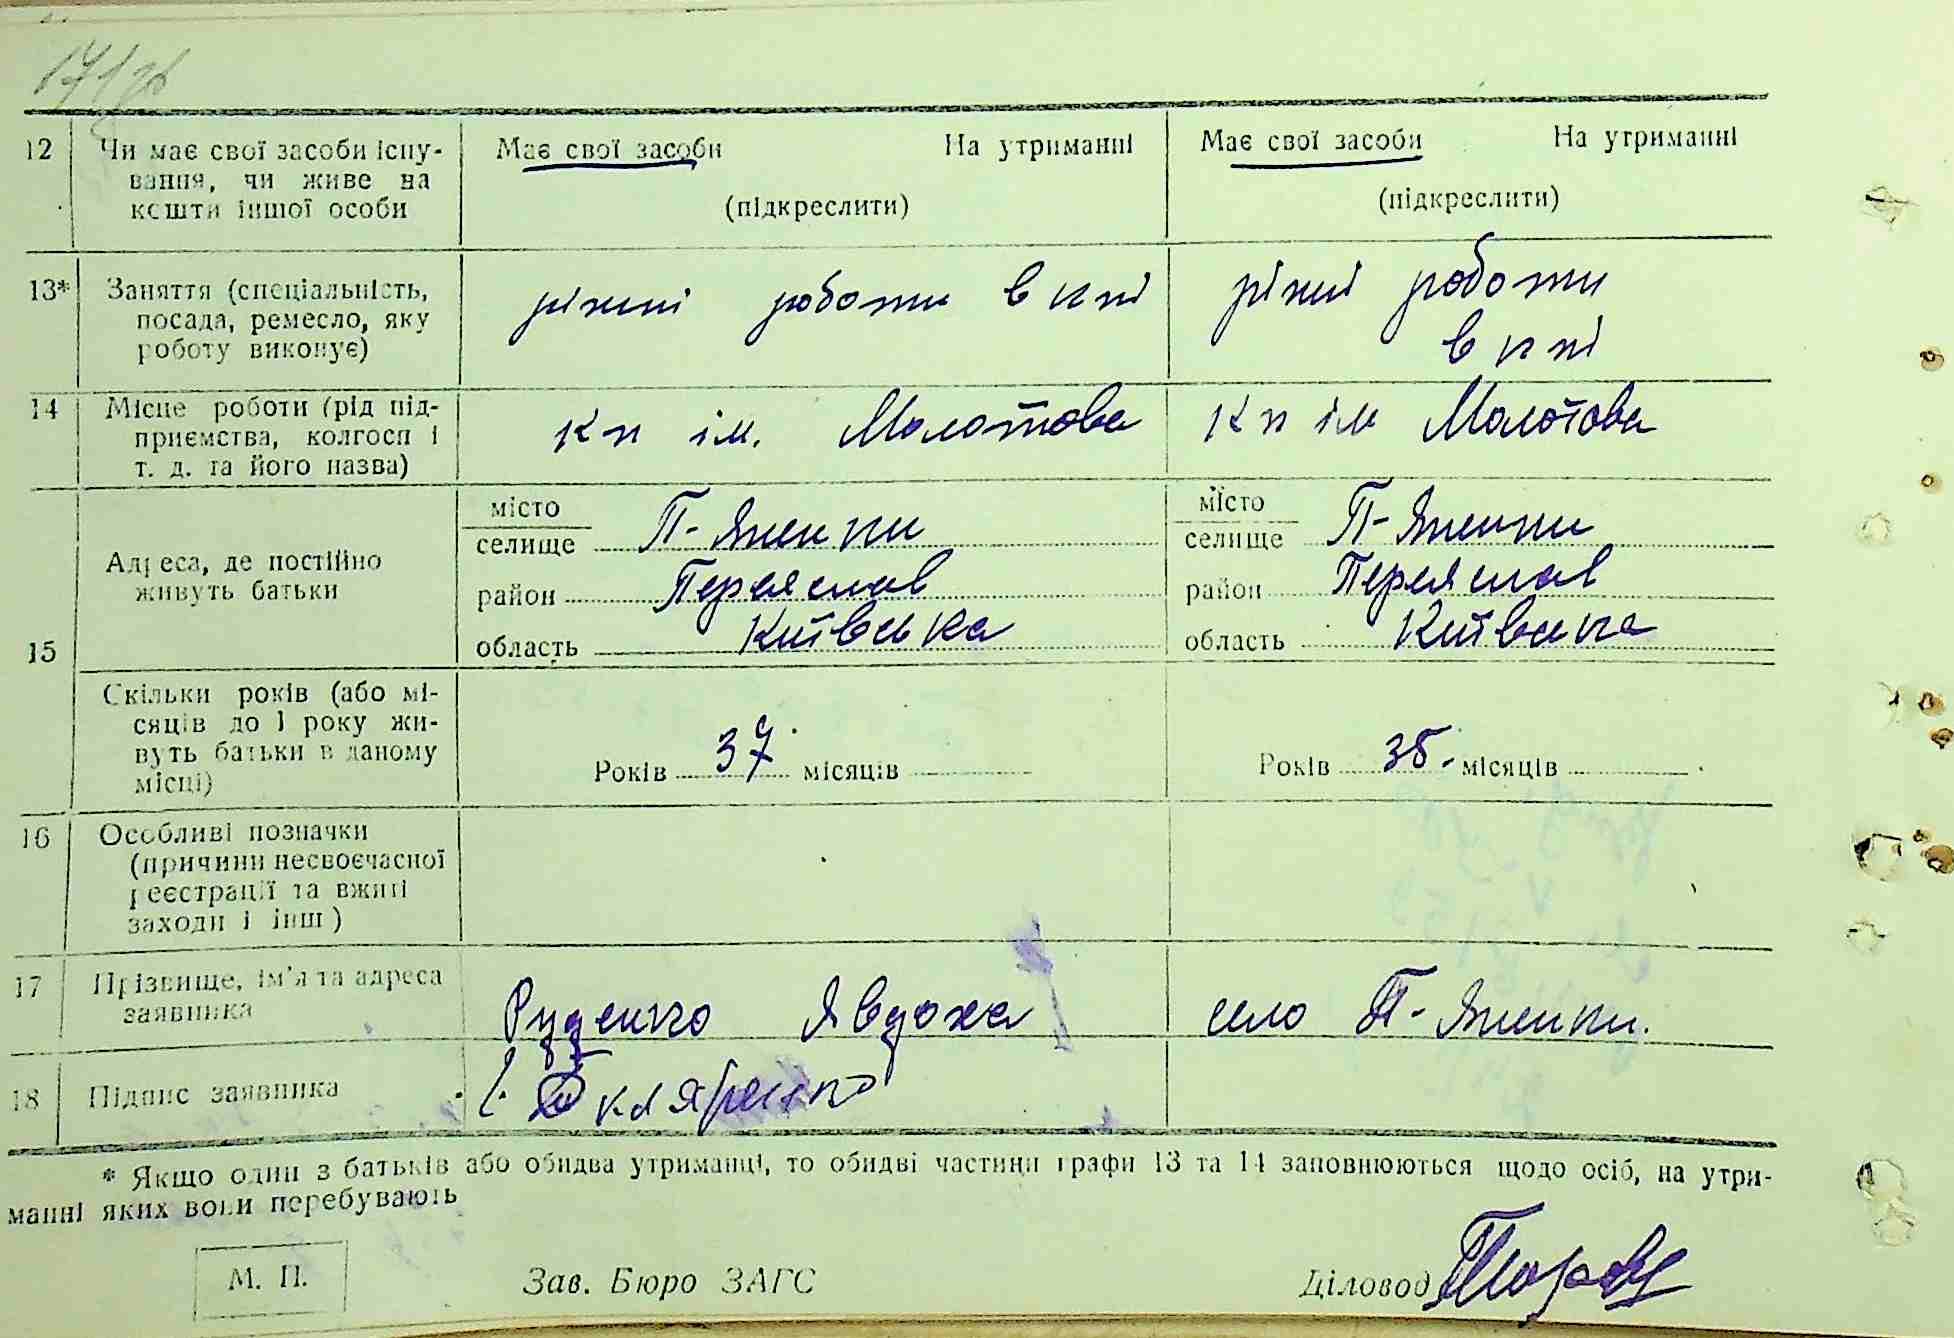 12 Чи має свої засоби існу-
вання, чи живе на
кошти іншої особи
Має свої засоби На утриманні
(підкреслити)
Має свої засоби На утриманні
(підкреслити)
13* Заняття (спеціальність,
посада, ремесло, яку
роботу виконує)
ріжні роботи в кпі
ріжні роботи
в кпі
14 Місце роботи (рід під-
приємства, колгосп і
т. д. та його назва)
кп ім. Молотова
кп ім Молотова
15
Адреса, де постійно
живуть батьки
місто
селище П-Яненки
район Переяслав
область Київська
місто
селище П-Яненки
район Переяслав
область Київська
Скільки років (або мі-
сяців до 1 року жи-
вуть батьки в даному
місці)
Років 37. місяців
Років 35. місяців
16 Особливі позначки
(причини несвоєчасної
реєстрації та вжиті
заходи і інш)
17 Прізвище, ім'я та адреса
заявника
Руденко Явдоха
село П-Яненки.
18 Підпис заявника
Скляренко
* Якщо один з батьків або обидва утриманці, то обидві частини графи 13 та 14 заповнюються щодо осіб, на утри-
манні яких вони перебувають
М. П.
Зав. Бюро ЗАГС
Діловод